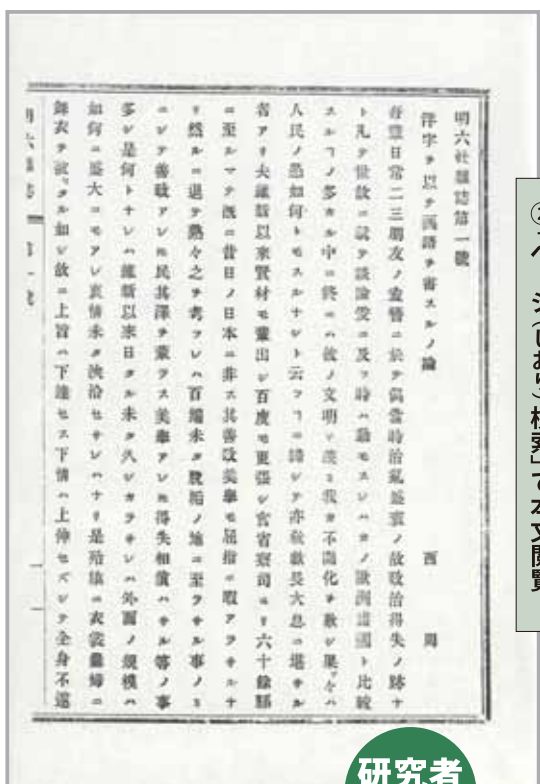 明六社雑誌第一號
洋字ヲ以テ國語ヲ書スルノ論
西 周
吾輩日常二三朋友ノ盍簪ニ於テ偶當時治亂盛衰ノ故政治得失ノ跡ナ
ト凡テ世故ニ就テ談論爰ニ及フ時ハ動モスレハカノ歐洲諸國ト比較
スルヿノ多カル中ニ終ニハ彼ノ文明ヲ羨ミ我カ不開化ヲ歎シ果々ハ
人民ノ愚如何トモスルナシト云フヿニ歸シテ亦欷歔長大息ニ堪サル
者アリ夫維新以來賢材モ輩出シ百度モ更張シ官省寮司ヨリ六十餘縣
ニ至ルマテ既ニ昔日ノ日本ニ非ス其善政美擧モ屈指ニ暇アラサルナ
リ然ルニ退テ熟々之ヲ考フレハ百端未タ脱垢ノ地ニ至ラサル事ノミ
ニシテ善政アレ𪜈民其澤ヲ蒙ラス美擧アレ𪜈得失相償ハサル等ノ事
多シ是何トナレハ維新以來日タル未タ久シカラサレハ外面ノ規模ハ
如何ニ盛大ニモアレ衷情未タ浹洽セサレハナリ是殆猿ニ衣裳
舞衣ヲ被タル如シ故ニ上旨ハ下達セス下情ハ上伸セズシテ全身不遂
②ページ(しおり)検索」で本文閲覧
研究者